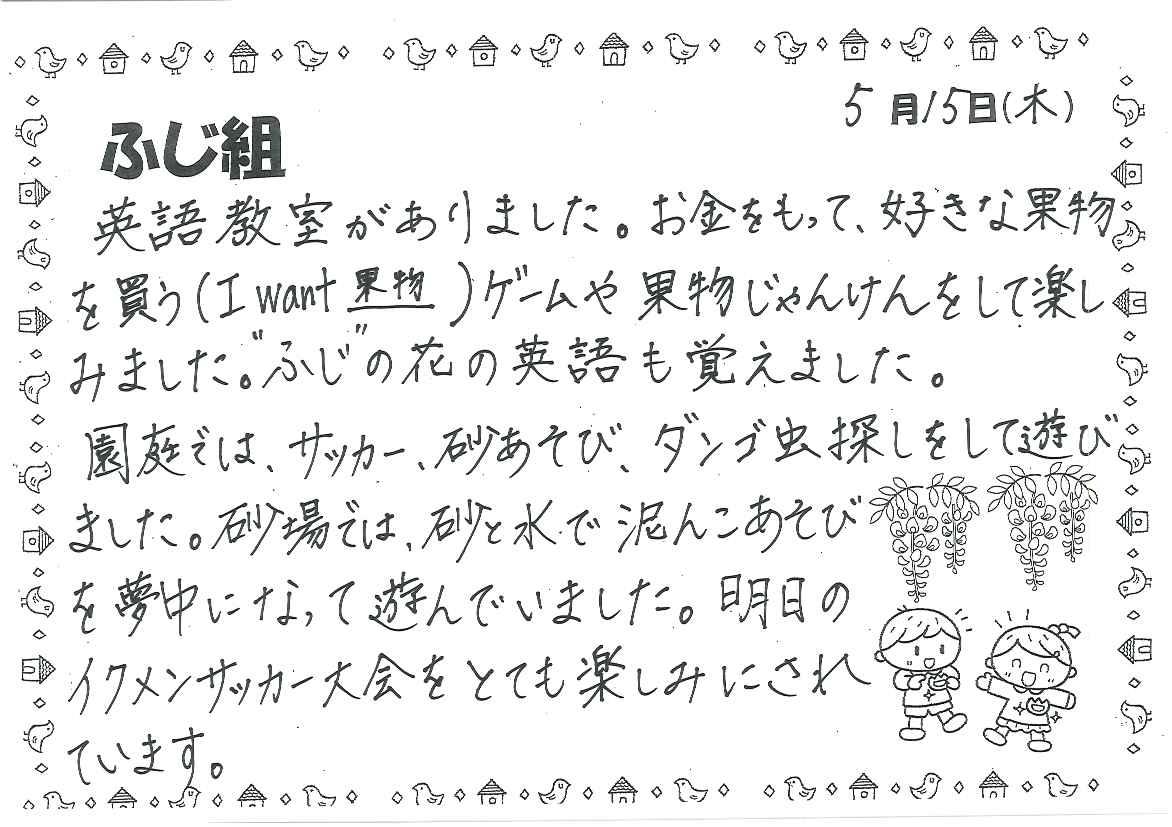 5月15日(木)
ふじ組
英語教室がありました。お金をもって、好きな果物
を買う(I want 果物 )ゲームや果物じゃんけんをして楽し
みました。"ふじ"の花の英語も覚えました。
園庭では、サッカー、砂あそび、ダンゴ虫探しをして遊び
ました。砂場では、砂と水で泥んこあそび
を夢中になって遊んでいました。明日の
イクメンサッカー大会をとても楽しみにされ
ています。